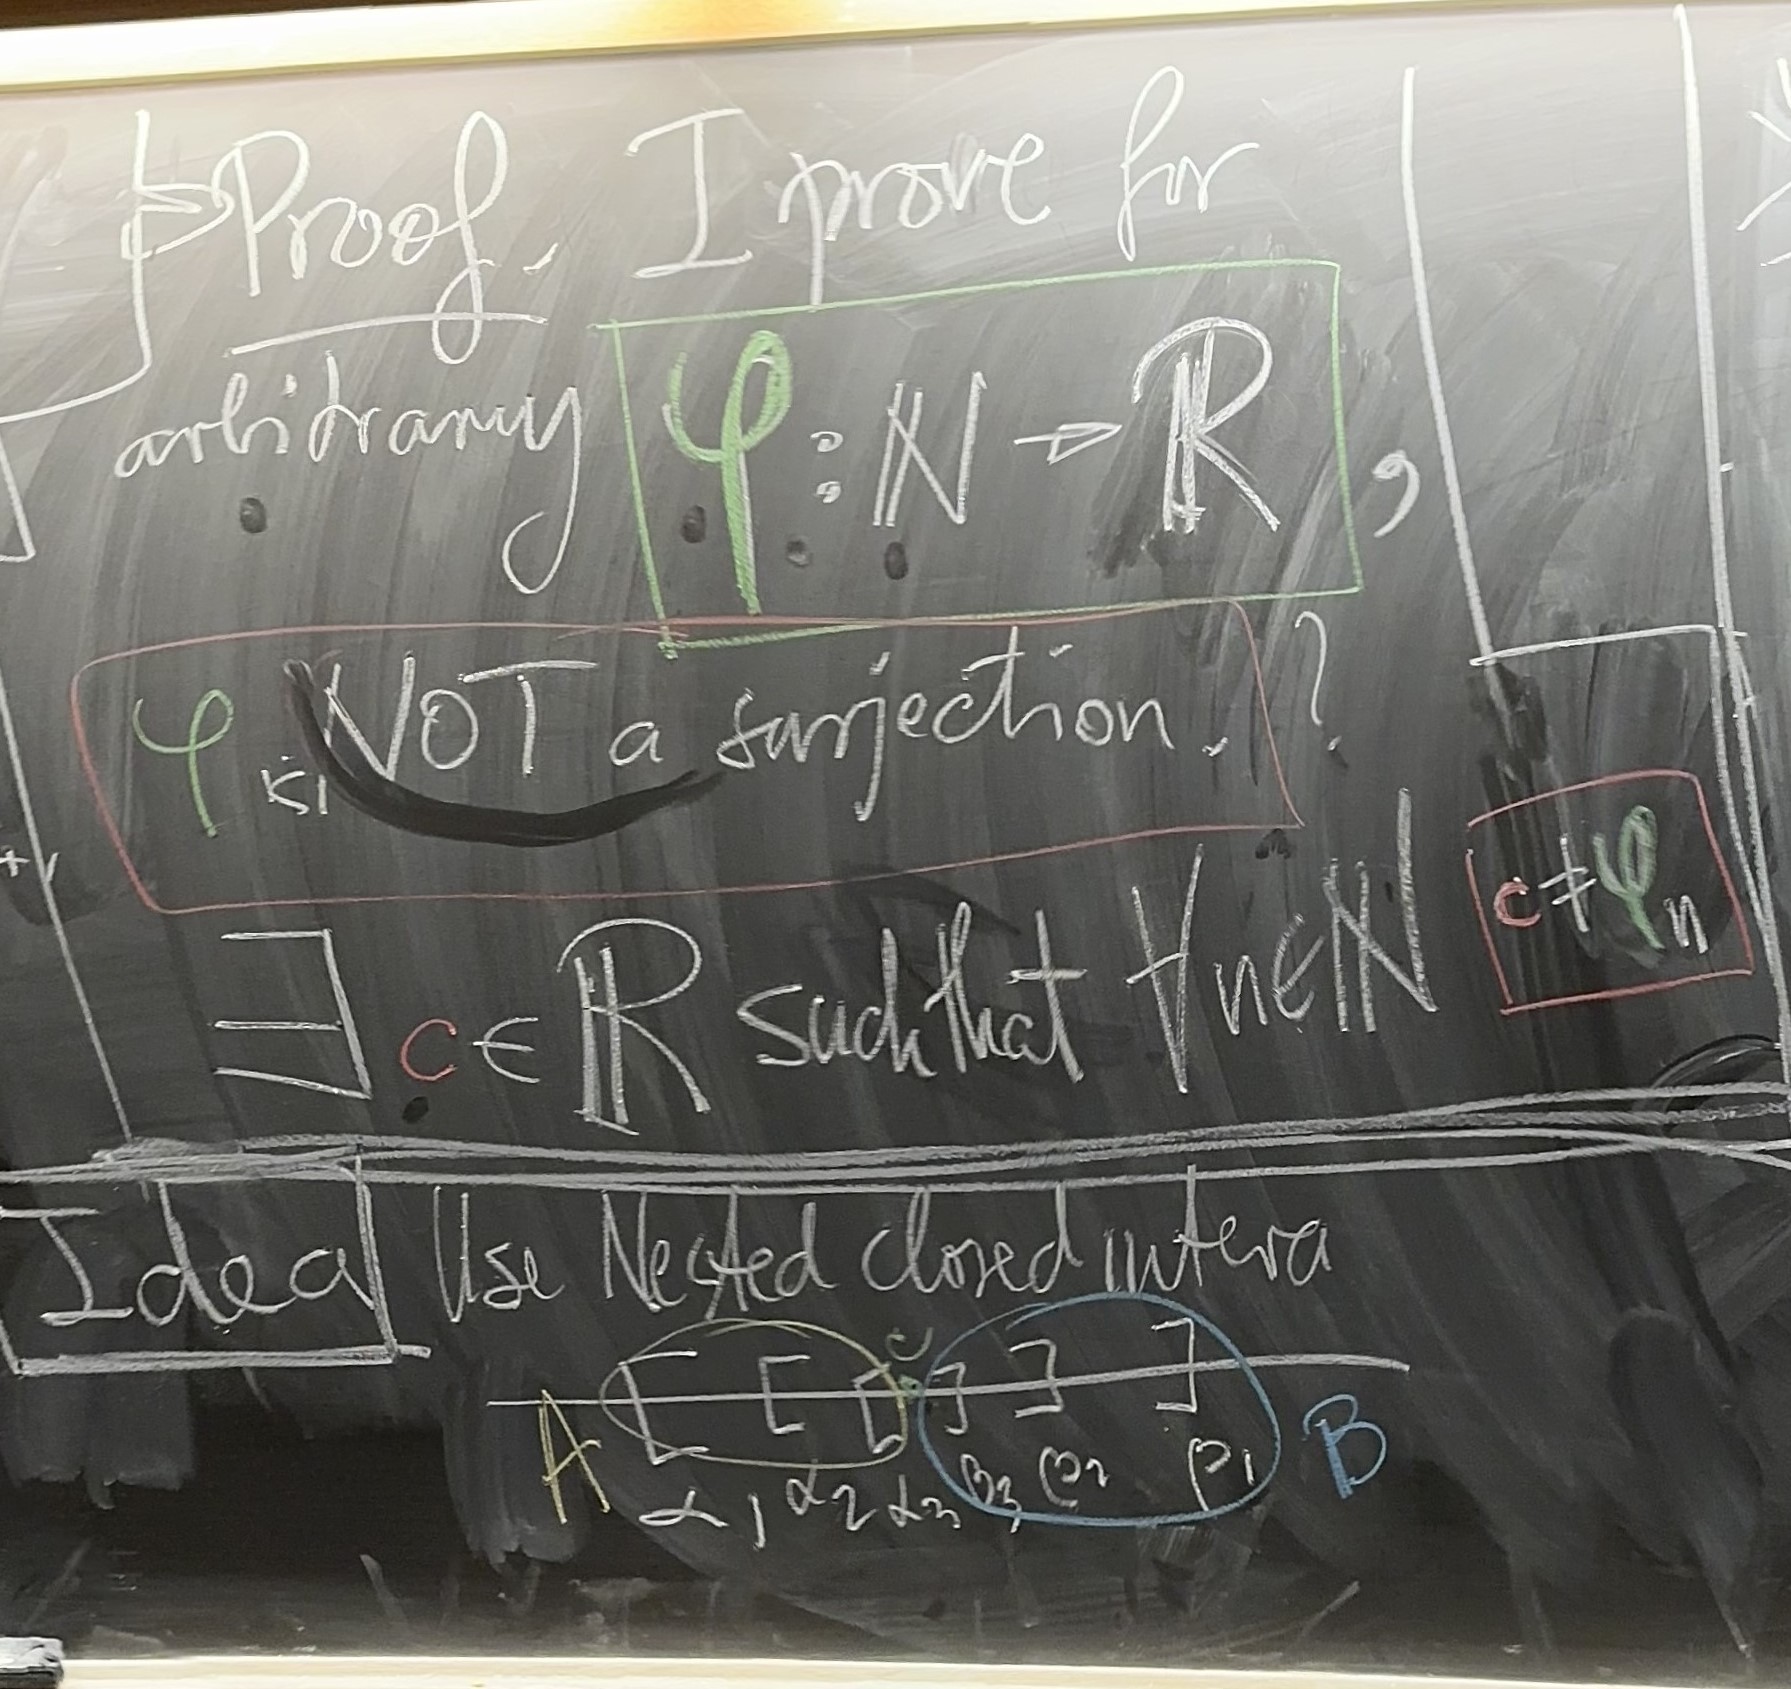 Proof. I prove for
arbitrary φ : ℕ → ℝ ,
φ is NOT a surjection. ?
∃ c ∈ ℝ such that ∀ n ∈ ℕ c ≠ φn
Idea Use Nested closed interva
c
[ [ [ ] ] ]
A α1 α2 α3 β3 β2 β1 B